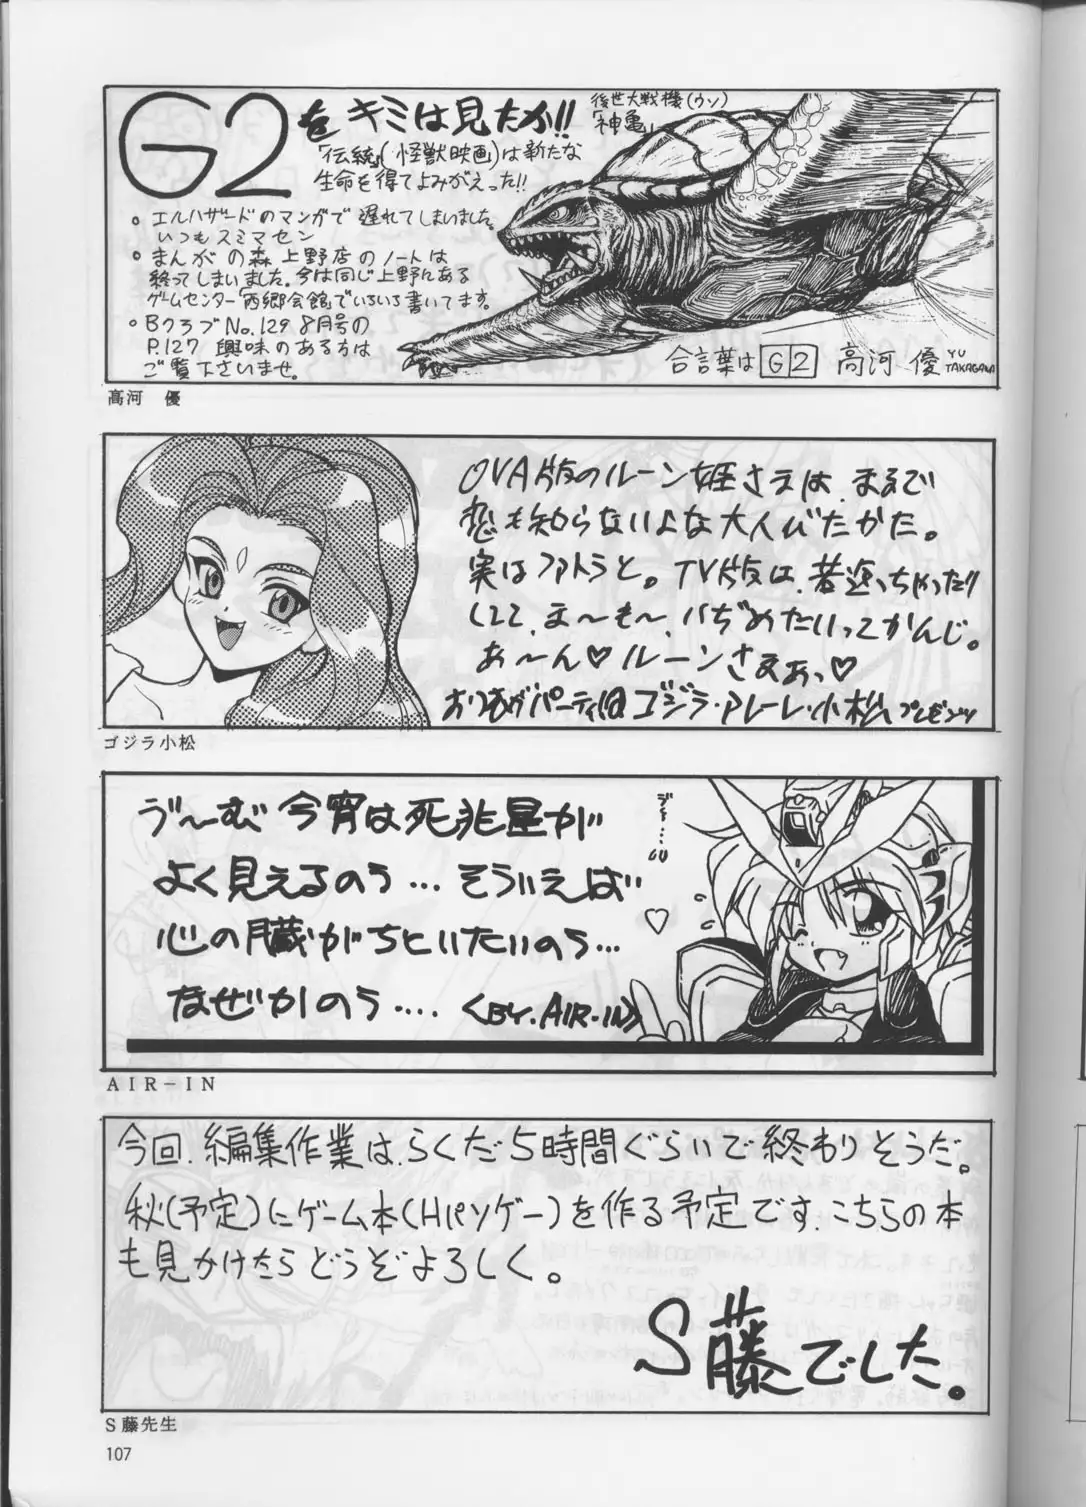 G2を キミは見たか!!
「伝統」(怪獣映画)は新たな
生命を得てよみがえった!!
後世大戦機(ウソ)
「神亀」
• エルハザードのマンガで遅れてしまいました。
いつもスミマセン
• まんがの森 上野店のノートは
終ってしまいました。今は同じ上野にある
ゲームセンター「西郷会館」でいろいろ書いてます。
• BクラブNo.129 8月号の
P.127 興味のある方は
ご覧下さいませ。
合言葉は G2 高河 優 YU
TAKAGAWA
高河 優
OVA版のルーン姫さまは、まるで
恋も知らないよな大人びたかた。
実はファトラと。TV版は、若返っちゃったり
してて、ま〜も〜、いぢめたいってかんじ。
あ〜ん♡ルーンさまぁっ♡
ゴジラ・アレーレ・小松 プレゼンツ
ゴジラ小松
う゛〜む 今宵は死兆星が
よく見えるのう…そういえば
心の臓がちといたいのう…
なぜかのう…. <BY.AIR-IN>
♡
AIR-IN
今回、編集作業は、らくだ5時間ぐらいで終わりそうだ。
秋(予定)にゲーム本(Hパソゲー)を作る予定です、こちらの本
も見かけたらどうぞよろしく。
S藤でした。
S藤先生
107